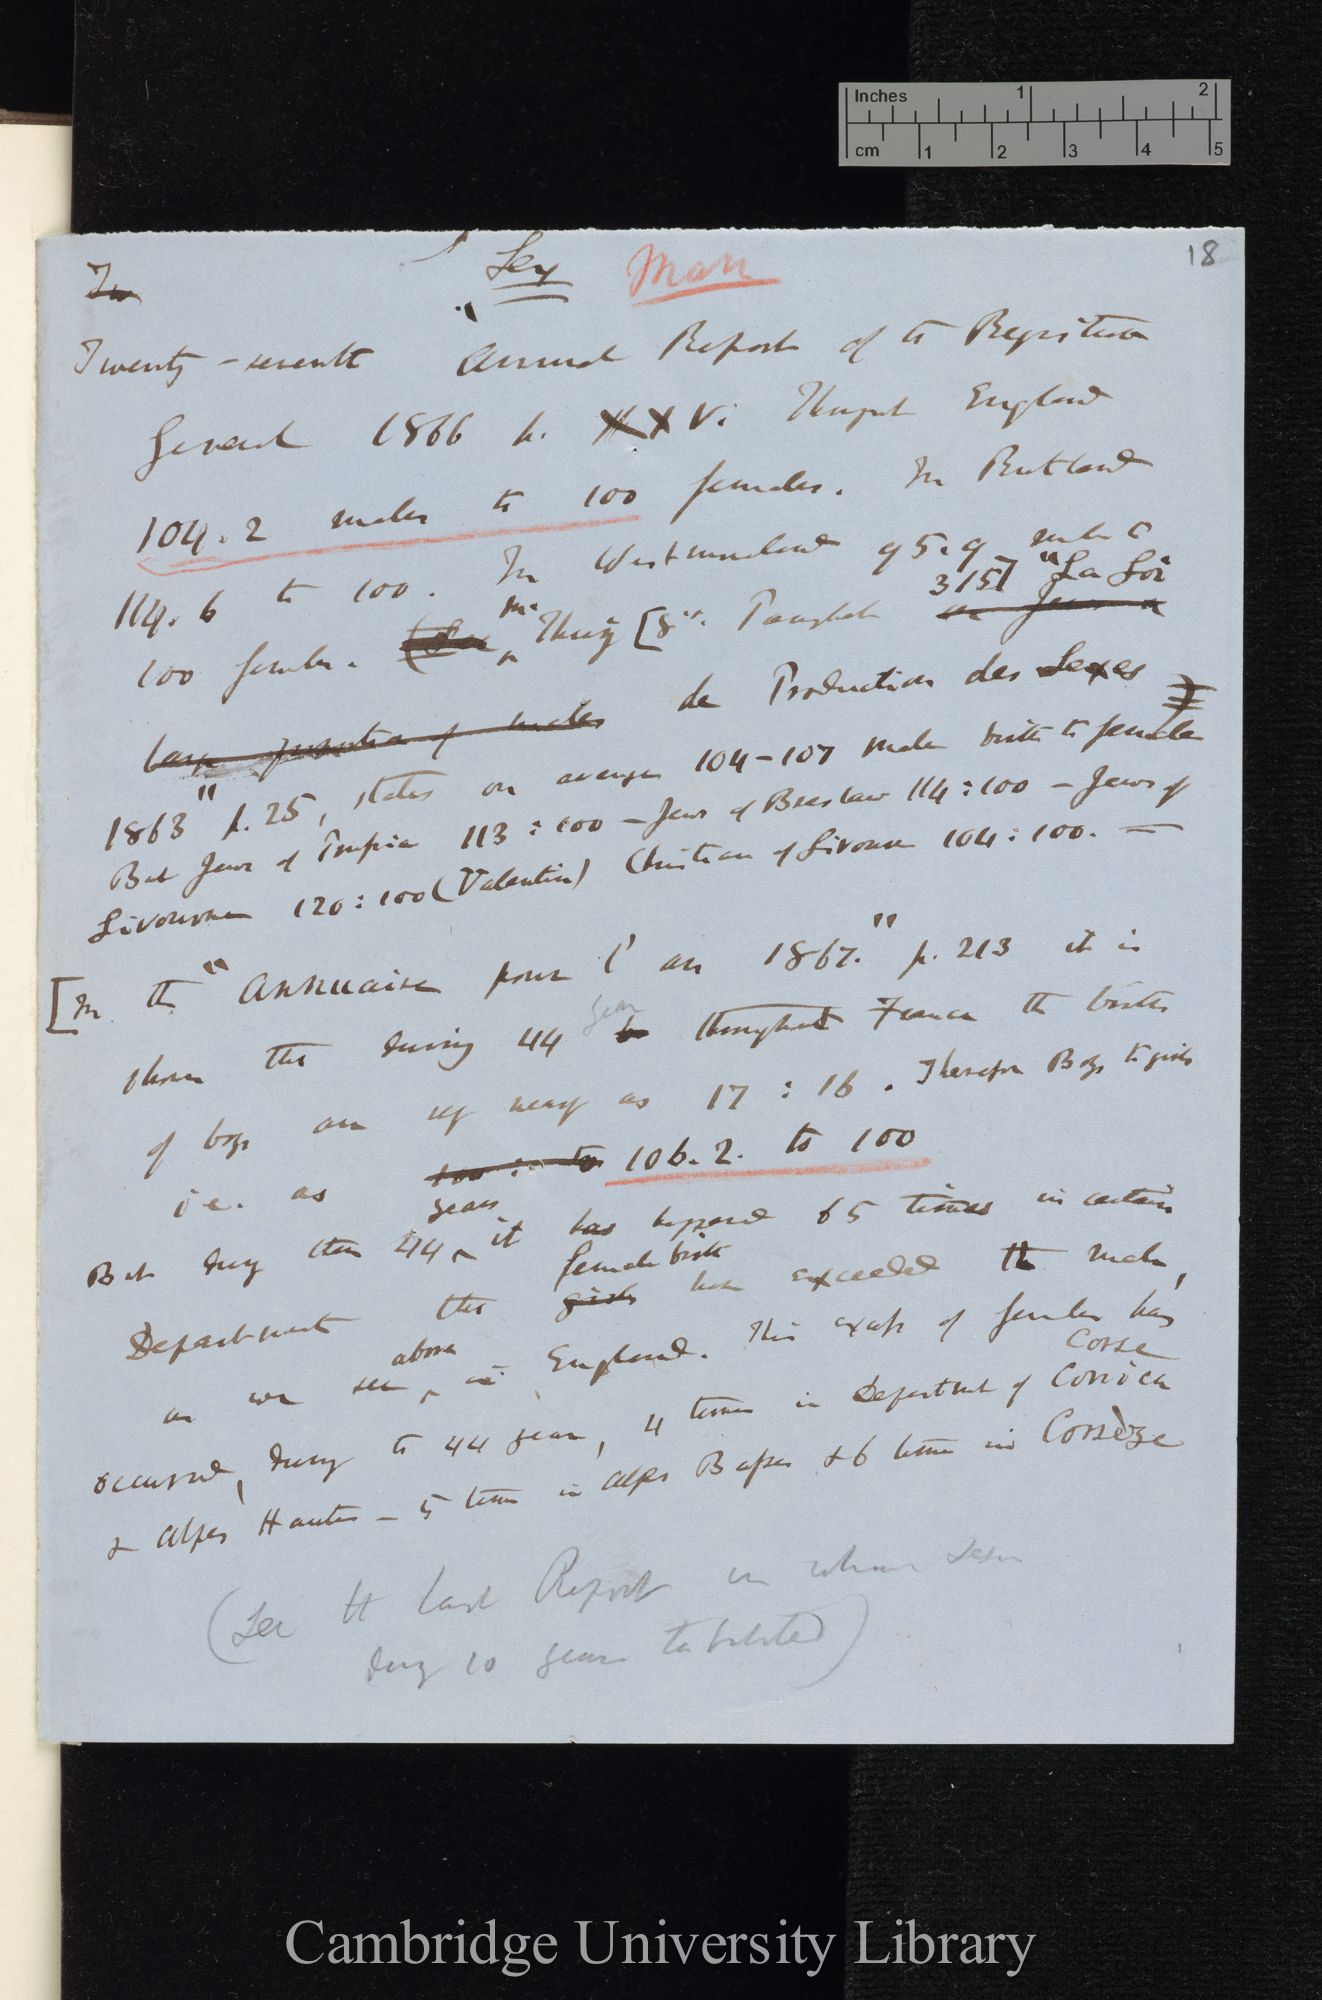 Inches 1 2
cm 1 2 3 4 5
18
In
Sex Man
Twenty-seventh Annual Report of the Registrar
General 1866 p. XXVi Through England
104.2 males to 100 females. In Rutland
114.6 to 100. In Westmoreland 95.9 males to
100 females.
de Production des Sexes
1863" p. 25, states on average 104-107 male births to female
But Jews of Prussia 113:100 - Jews of Breslaw 114:100 - Jews of
Livourne 120:100 (Valentin) Christian of Livourne 104:100. —
[In the "Annuaire pour l'an 1867." p. 213 it is
shown that during 44 years throughout France the births
of boys are very nearly as 17:16. Therefore Boys to girls
i.e. as 100: to 106.2. to 100
But during these 44 years it has happened 65 times in certain
Department that girls female births have exceeded the males,
as we see above in England. This excess of females has
occurred, during the 44 years, 4 times in Department of Corsica Corse
& Alpes Hautes - 5 times in Alpes Basses & 6 times in Corrèze
(See the last Report in
during 10 years tabulated)
Cambridge University Library